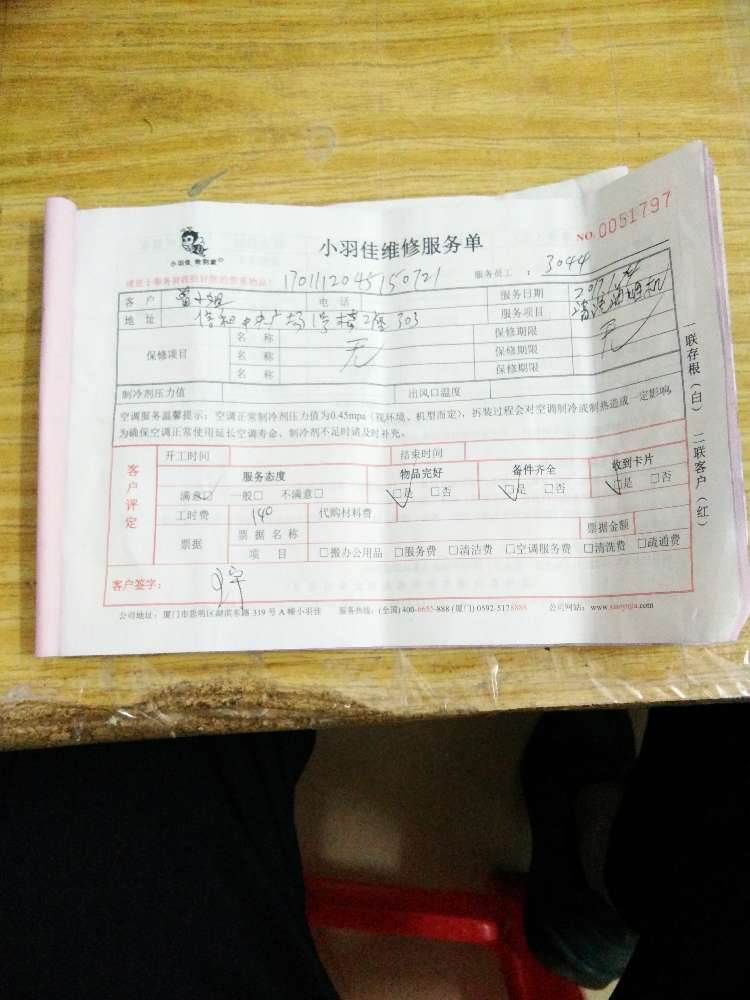 小羽佳维修服务单
NO.0051797
小羽佳 教到家
1701112045150721
服务员工：3044
客户 小姐 电话 服务日期 2017.1.14
地址 信和中央广场1号楼2座303 服务项目 清洗油烟机
保修项目 名称 无 保修期限 无
名称 保修期限
名称 保修期限
制冷剂压力值 出风口温度
空调服务温馨提示：空调正常制冷剂压力值为0.45mpa（视环境、机型而定），拆装过程会对空调制冷或制热造成一定影响，
为确保空调正常使用延长空调寿命，制冷剂不足时请及时补充。
客户评定
开工时间 结束时间
服务态度 物品完好 备件齐全 收到卡片
满意□ 一般□ 不满意□ ☑是 □否 ☑是 □否 ☑是 □否
工时费 140 代购材料费
票据 票据名称 票据金额
项目 □搬办公用品 □服务费 □清洁费 □空调服务费 □清洗费 □疏通费
客户签字：
公司地址：厦门市思明区湖滨东路 319 号 A 幢小羽佳 服务热线：(全国)400-6655-888 (厦门) 0592-5178888 公司网站：www.xiaoyujia.com
一联存根（白） 二联客户（红）